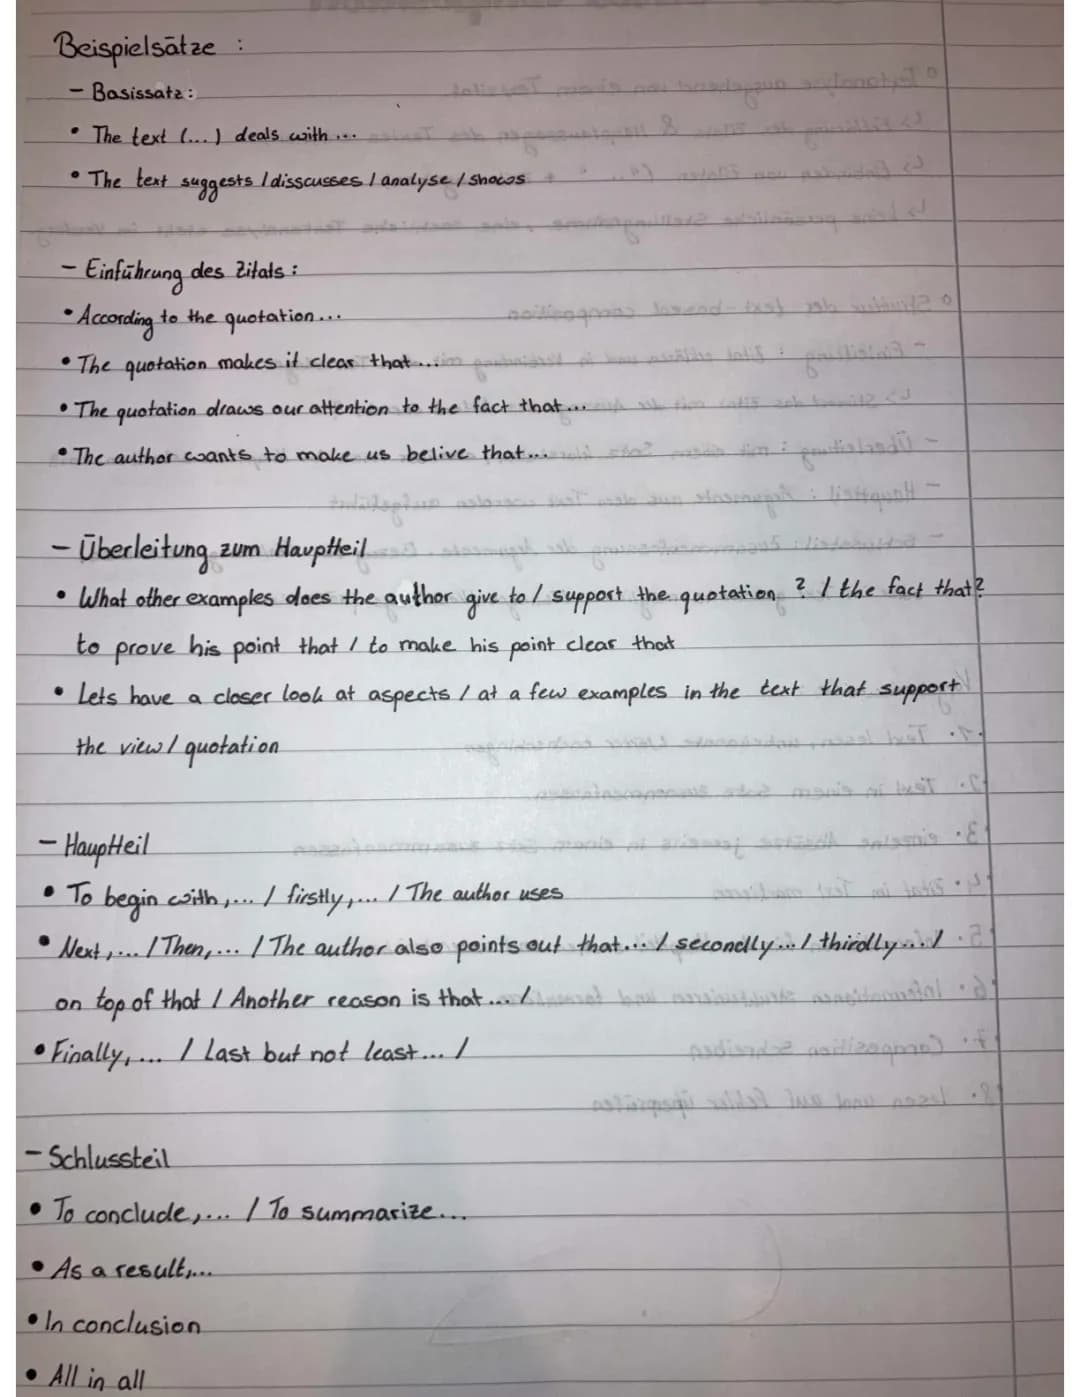 Beispielsätze :
- Basissatz:
• The text (...) deals with ...
• The text suggests / disscusses / analyse / shows
- Einführung des Zitats :
• According to the quotation...
• The quotation makes it clear that...
• The quotation draws our attention to the fact that...
• The author wants to make us belive that...
- Überleitung zum Hauptteil
• What other examples does the author give to / support the quotation ? / the fact that?
to prove his point that / to make his point clear that
• Lets have a closer look at aspects / at a few examples in the text that support
the view / quotation
- Hauptteil
• To begin with,... / firstly,... / The author uses
• Next,... / Then,... / The author also points out that... / secondly... / thirdly... /
on top of that / Another reason is that ... /
• Finally, ... / Last but not least... /
- Schlussteil
• To conclude,... / To summarize...
• As a result,...
• In conclusion
• All in all